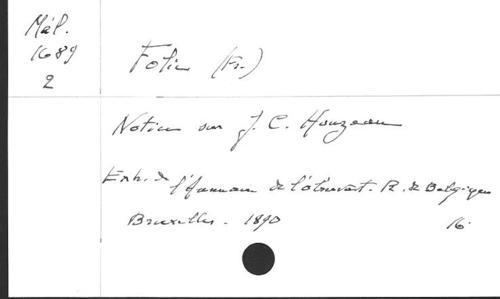 Mél.
1689
2
Folie (Fr.)
Notice sur J. C. Houzeau
Extr. de l'Annuaire de l'observat. R. de Belgique
Bruxelles. 1890 16